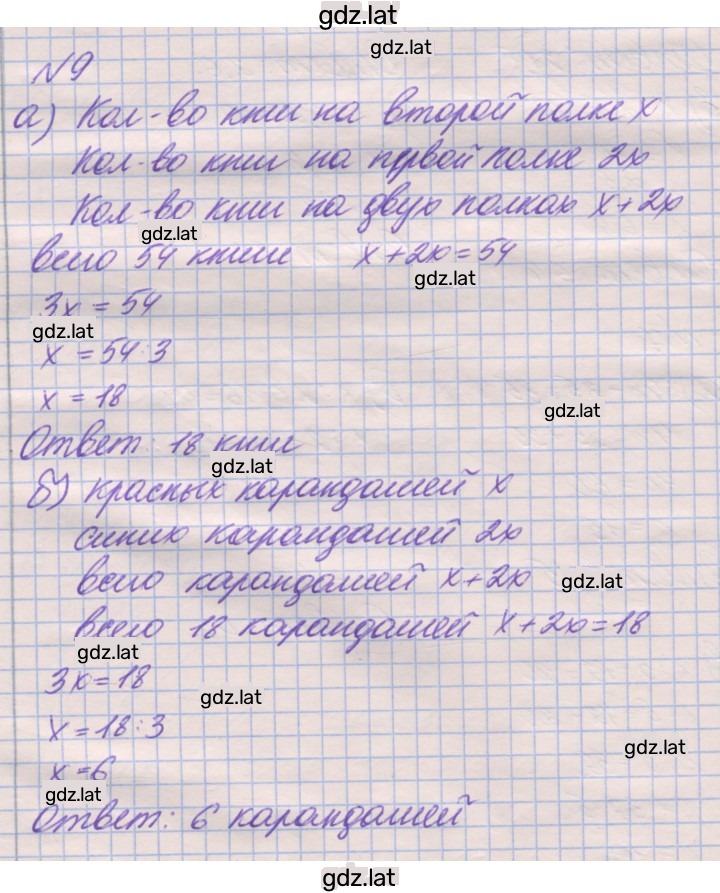 gdz.lat
gdz.lat
№9
а) Кол-во книг на второй полке x
Кол-во книг на первой полке 2x
Кол-во книг на двух полках x+2x
gdz.lat
всего 54 книги x+2x=54
gdz.lat
3x = 54
gdz.lat
x = 54:3
x = 18
gdz.lat
Ответ: 18 книг
gdz.lat
б) красных карандашей x
синих карандашей 2x
всего карандашей x+2x
gdz.lat
всего 18 карандашей x+2x=18
gdz.lat
3x=18
gdz.lat
x=18:3
gdz.lat
x=6
gdz.lat
Ответ: 6 карандашей
gdz.lat